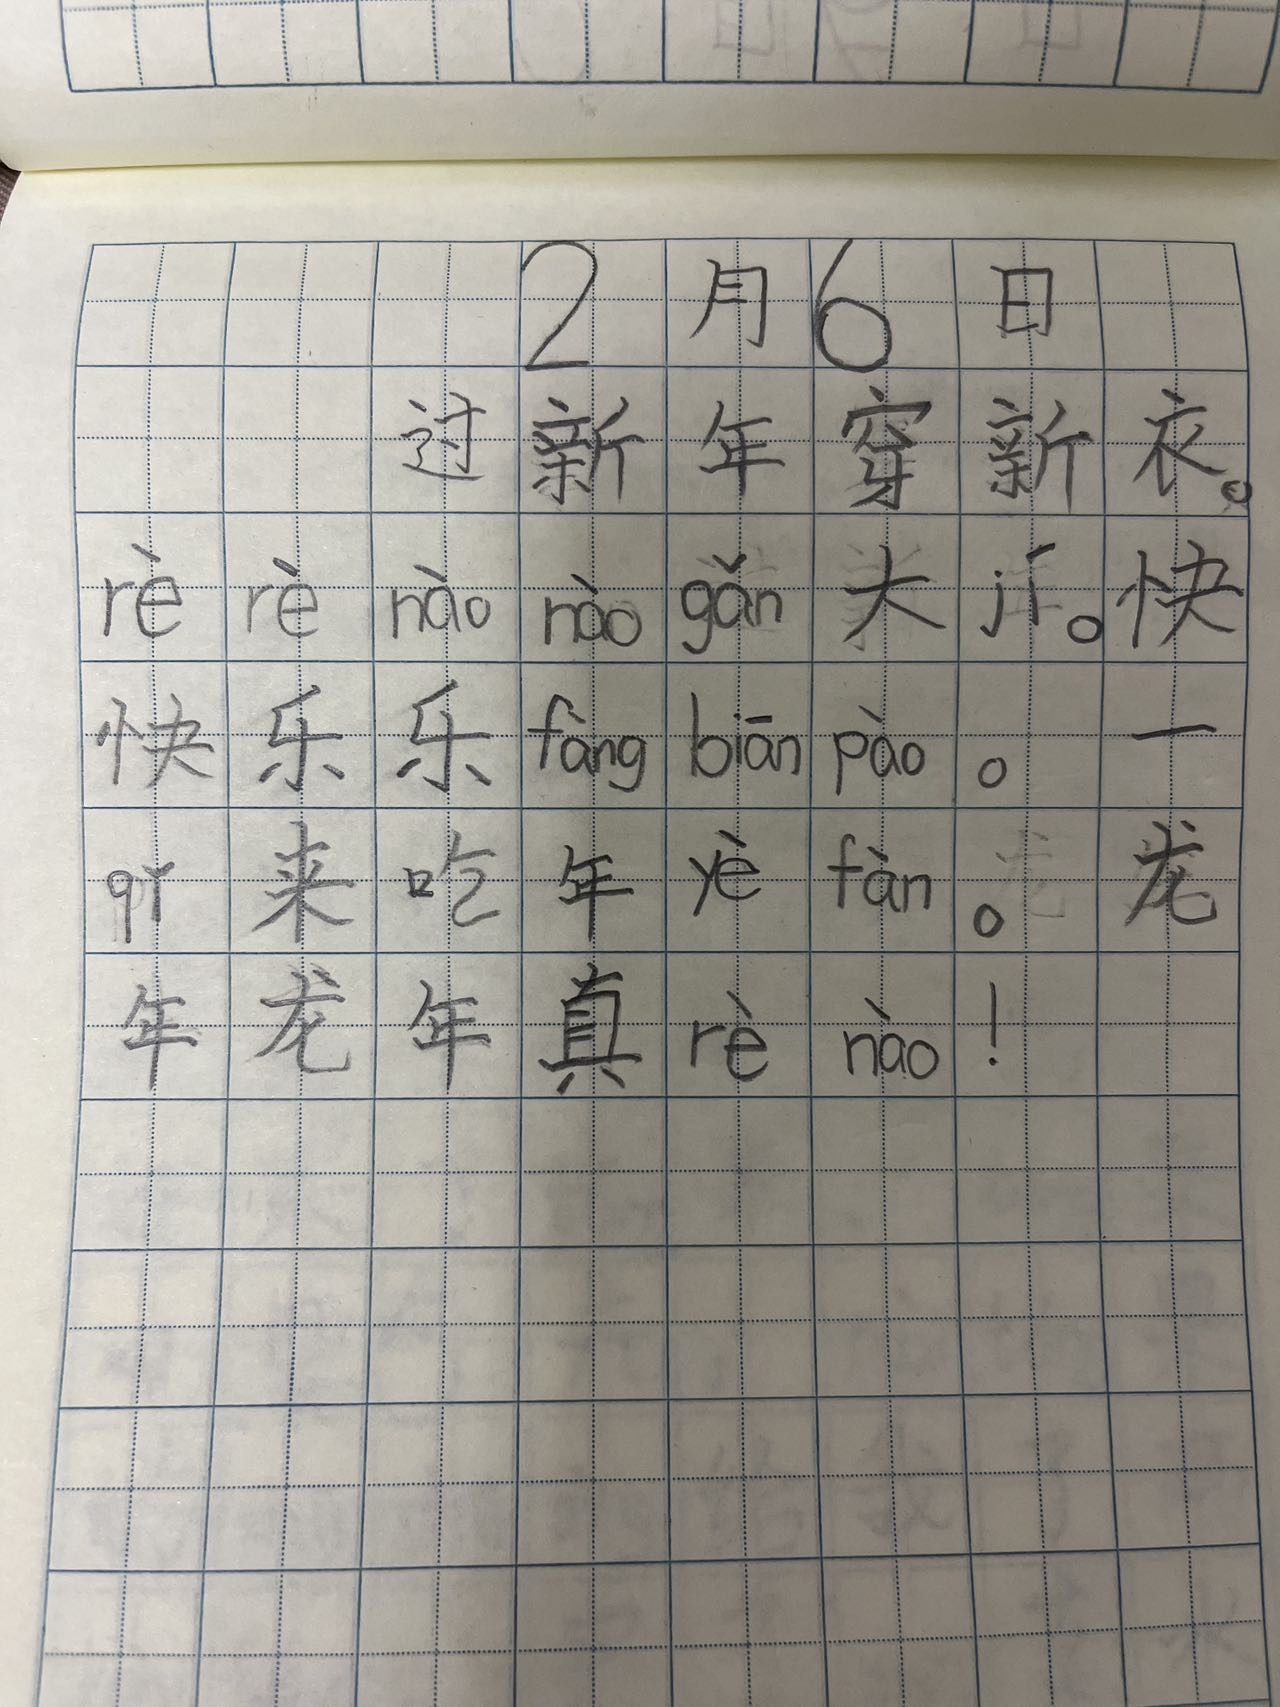 2月6日
过新年穿新衣。
rè rè nào nào gǎn 大 jí。快
快乐乐 fàng biān pào。一
qǐ 来吃年 yè fàn。龙
年龙年真 rè nào！